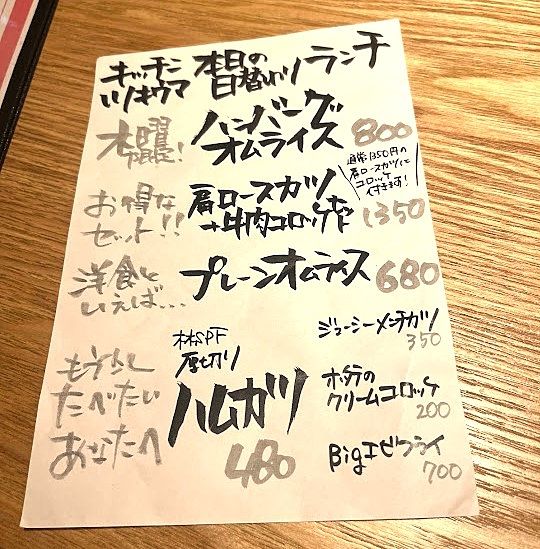 キッチン
いノキウマ
本日の
日替わり
ランチ
木曜
限定!
ハンバーグ
オムライス
800
通常1350円の
肩ロースカツに
コロッケ
付きます!
お得な
セット!!
肩ロースカツ
+牛肉コロッケセット
1350
洋食と
いえば...
プレーンオムライス
680
もう少し
たべたい
あなたへ
林SPF
厚切り
ハムカツ
480
ジューシーメンチカツ
350
ホタテの
クリームコロッケ
200
Bigエビフライ
700